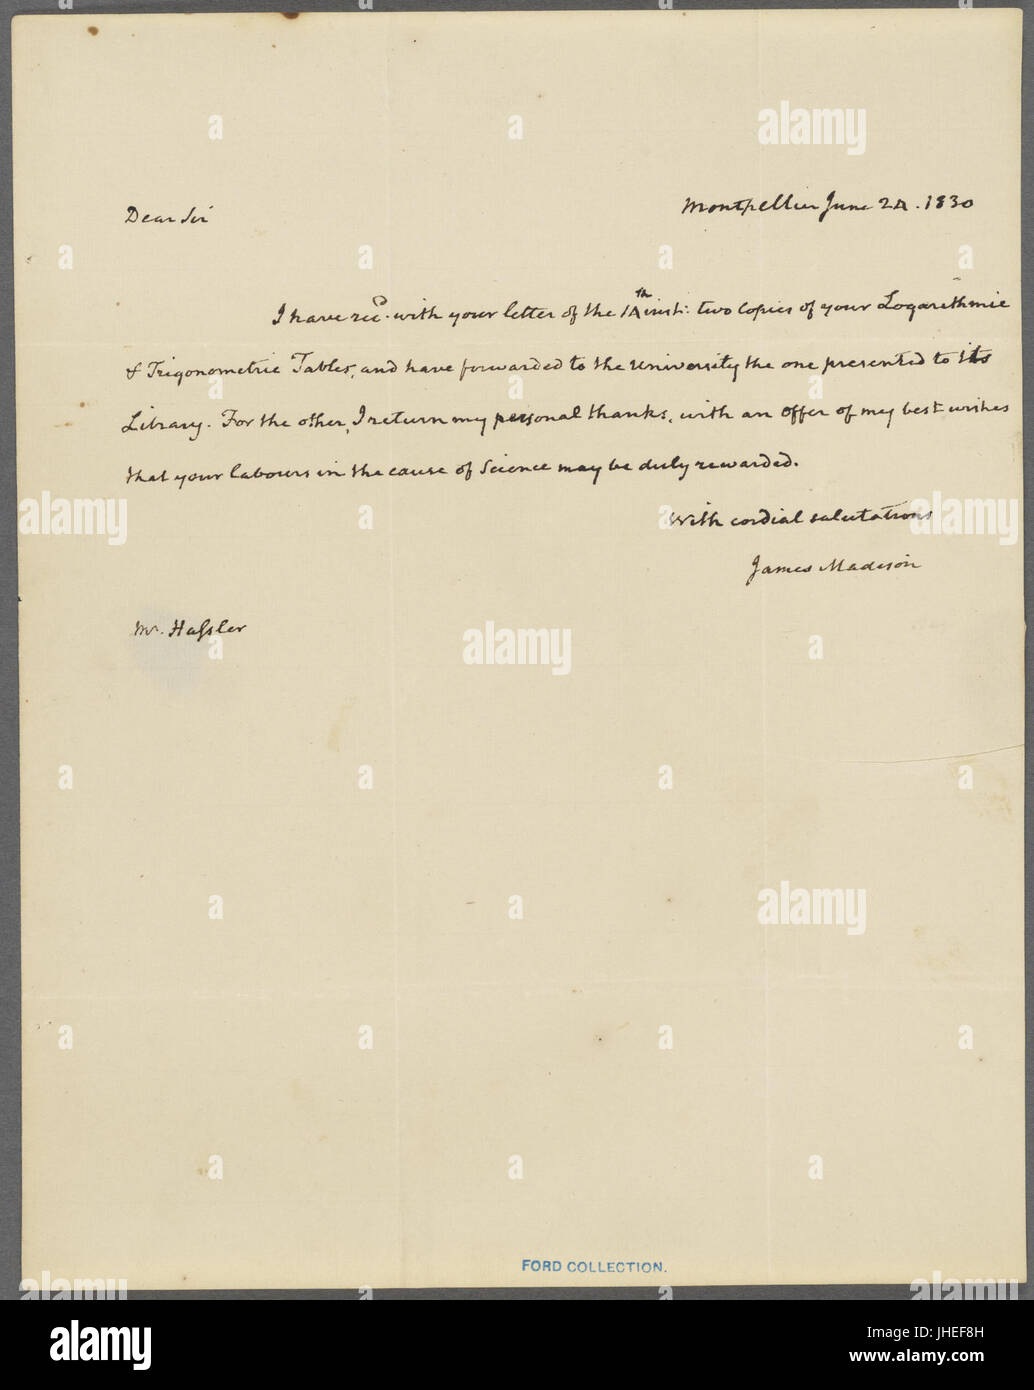 Dear Sir
Montpellier June 24. 1830
I have recd. with your letter of the 14th inst: two copies of your Logarithmic
& Trigonometric Tables, and have forwarded to the University the one presented to its
Library. For the other, I return my personal thanks, with an offer of my best wishes
that your labours in the cause of Science may be duly rewarded.
With cordial salutations
James Madison
Mr. Hassler
FORD COLLECTION.
alamy
Image ID: JHEF8H
www.alamy.com